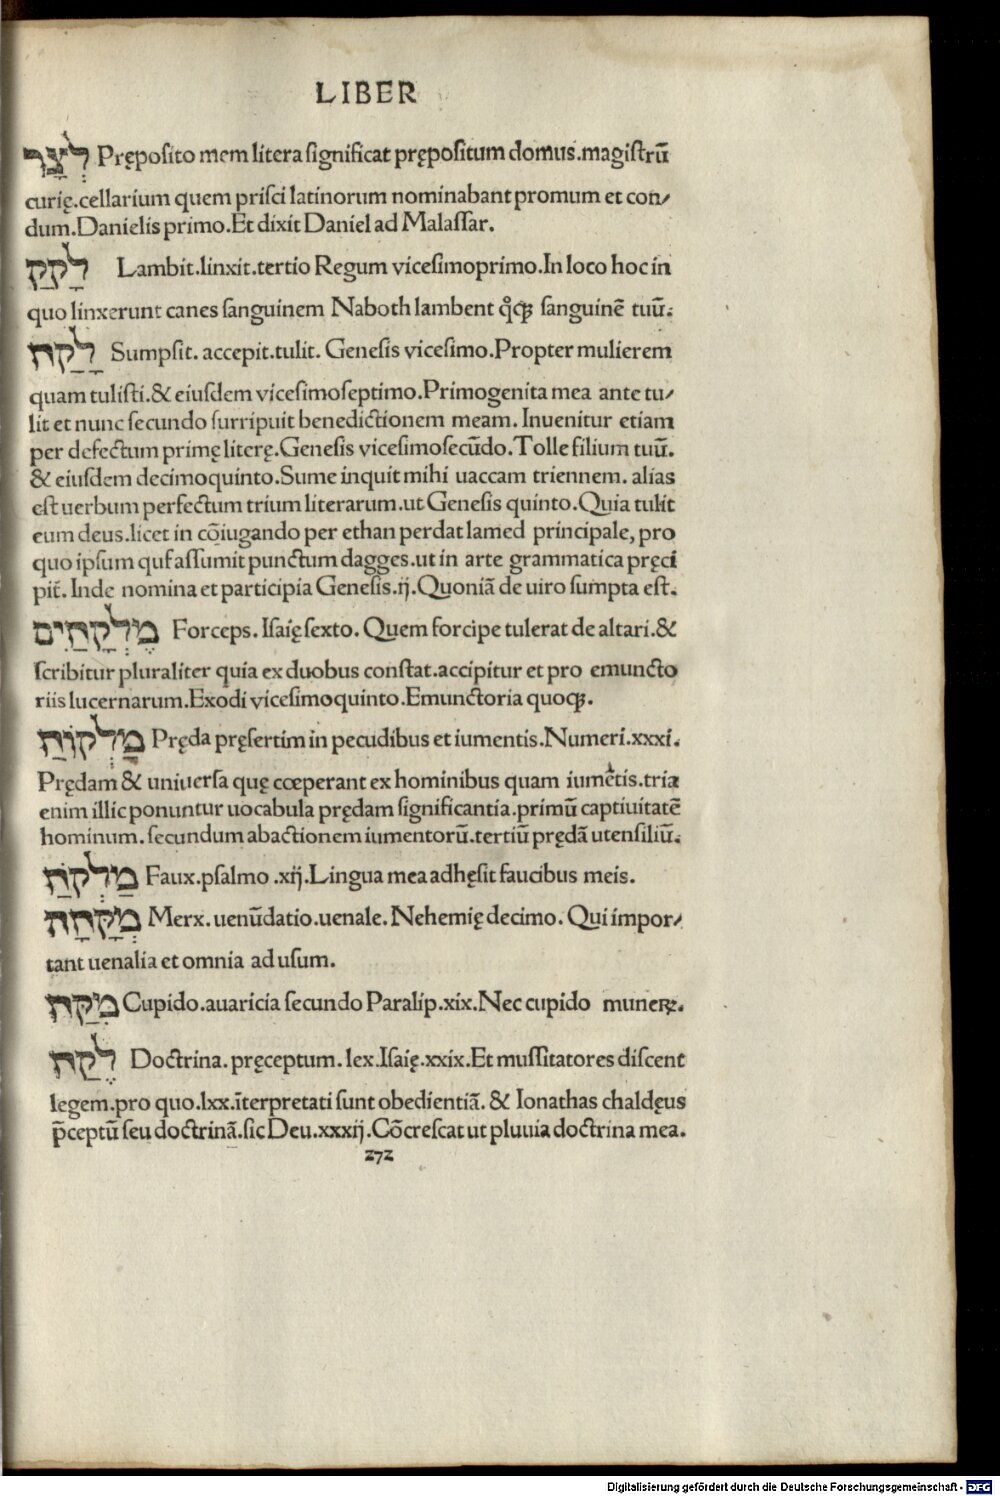 LIBER
לְצַר Pręposito mem litera significat prępositum domus.magistrū
curię.cellarium quem prisci latinorum nominabant promum et con/
dum.Danielis primo.Et dixit Daniel ad Malassar.
לָקַק Lambit.linxit.tertio Regum vicesimoprimo.In loco hoc in
quo linxerunt canes sanguinem Naboth lambent qͦꝗ sanguinē tuū.
לָקַח Sumpsit. accepit.tulit. Genesis vicesimo.Propter mulierem
quam tulisti.& eiusdem vicesimoseptimo.Primogenita mea ante tu/
lit et nunc secundo surripuit benedictionem meam. Inuenitur etiam
per defectum primę literę.Genesis vicesimosecūdo.Tolle filium tuū.
& eiusdem decimoquinto.Sume inquit mihi uaccam triennem. alias
est uerbum perfectum trium literarum.ut Genesis quinto.Quia tulit
eum deus.licet in cōiugando per ethan perdat lamed principale, pro
quo ipsum quf assumit punctum dagges.ut in arte grammatica pręci
pit̄. Inde nomina et participia Genesis.ij.Quoniā de uiro sumpta est.
מֶלְקָחַיִם Forceps. Isaię sexto. Quem forcipe tulerat de altari.&
scribitur pluraliter quia ex duobus constat.accipitur et pro emuncto
riis lucernarum.Exodi vicesimoquinto.Emunctoria quoꝗ.
מַלְקוֹחַ Pręda pręsertim in pecudibus et iumentis.Numeri.xxxi.
Prędam & uniuersa quę cœperant ex hominibus quam iumētis.tria
enim illic ponuntur uocabula prędam significantia.primū captiuitatē
hominum. secundum abactionem iumentorū.tertiū prędā utensiliū.
מַלְקֹחַ Faux.psalmo .xij.Lingua mea adhęsit faucibus meis.
מְקָחָה Merx. uenūdatio.uenale. Nehemię decimo. Qui impor/
tant uenalia et omnia ad usum.
מִקַּח Cupido.auaricia secundo Paralip.xix.Nec cupido muneꝝ.
לֶקַח Doctrina. pręceptum. lex.Isaię.xxix.Et mussitatores discent
legem.pro quo.lxx.īterpretati sunt obedientiā. & Ionathas chaldęus
p̄ceptū seu doctrinā.sic Deu.xxxij.Cōcrescat ut pluuia doctrina mea.
272
Digitalisierung gefördert durch die Deutsche Forschungsgemeinschaft - DFG